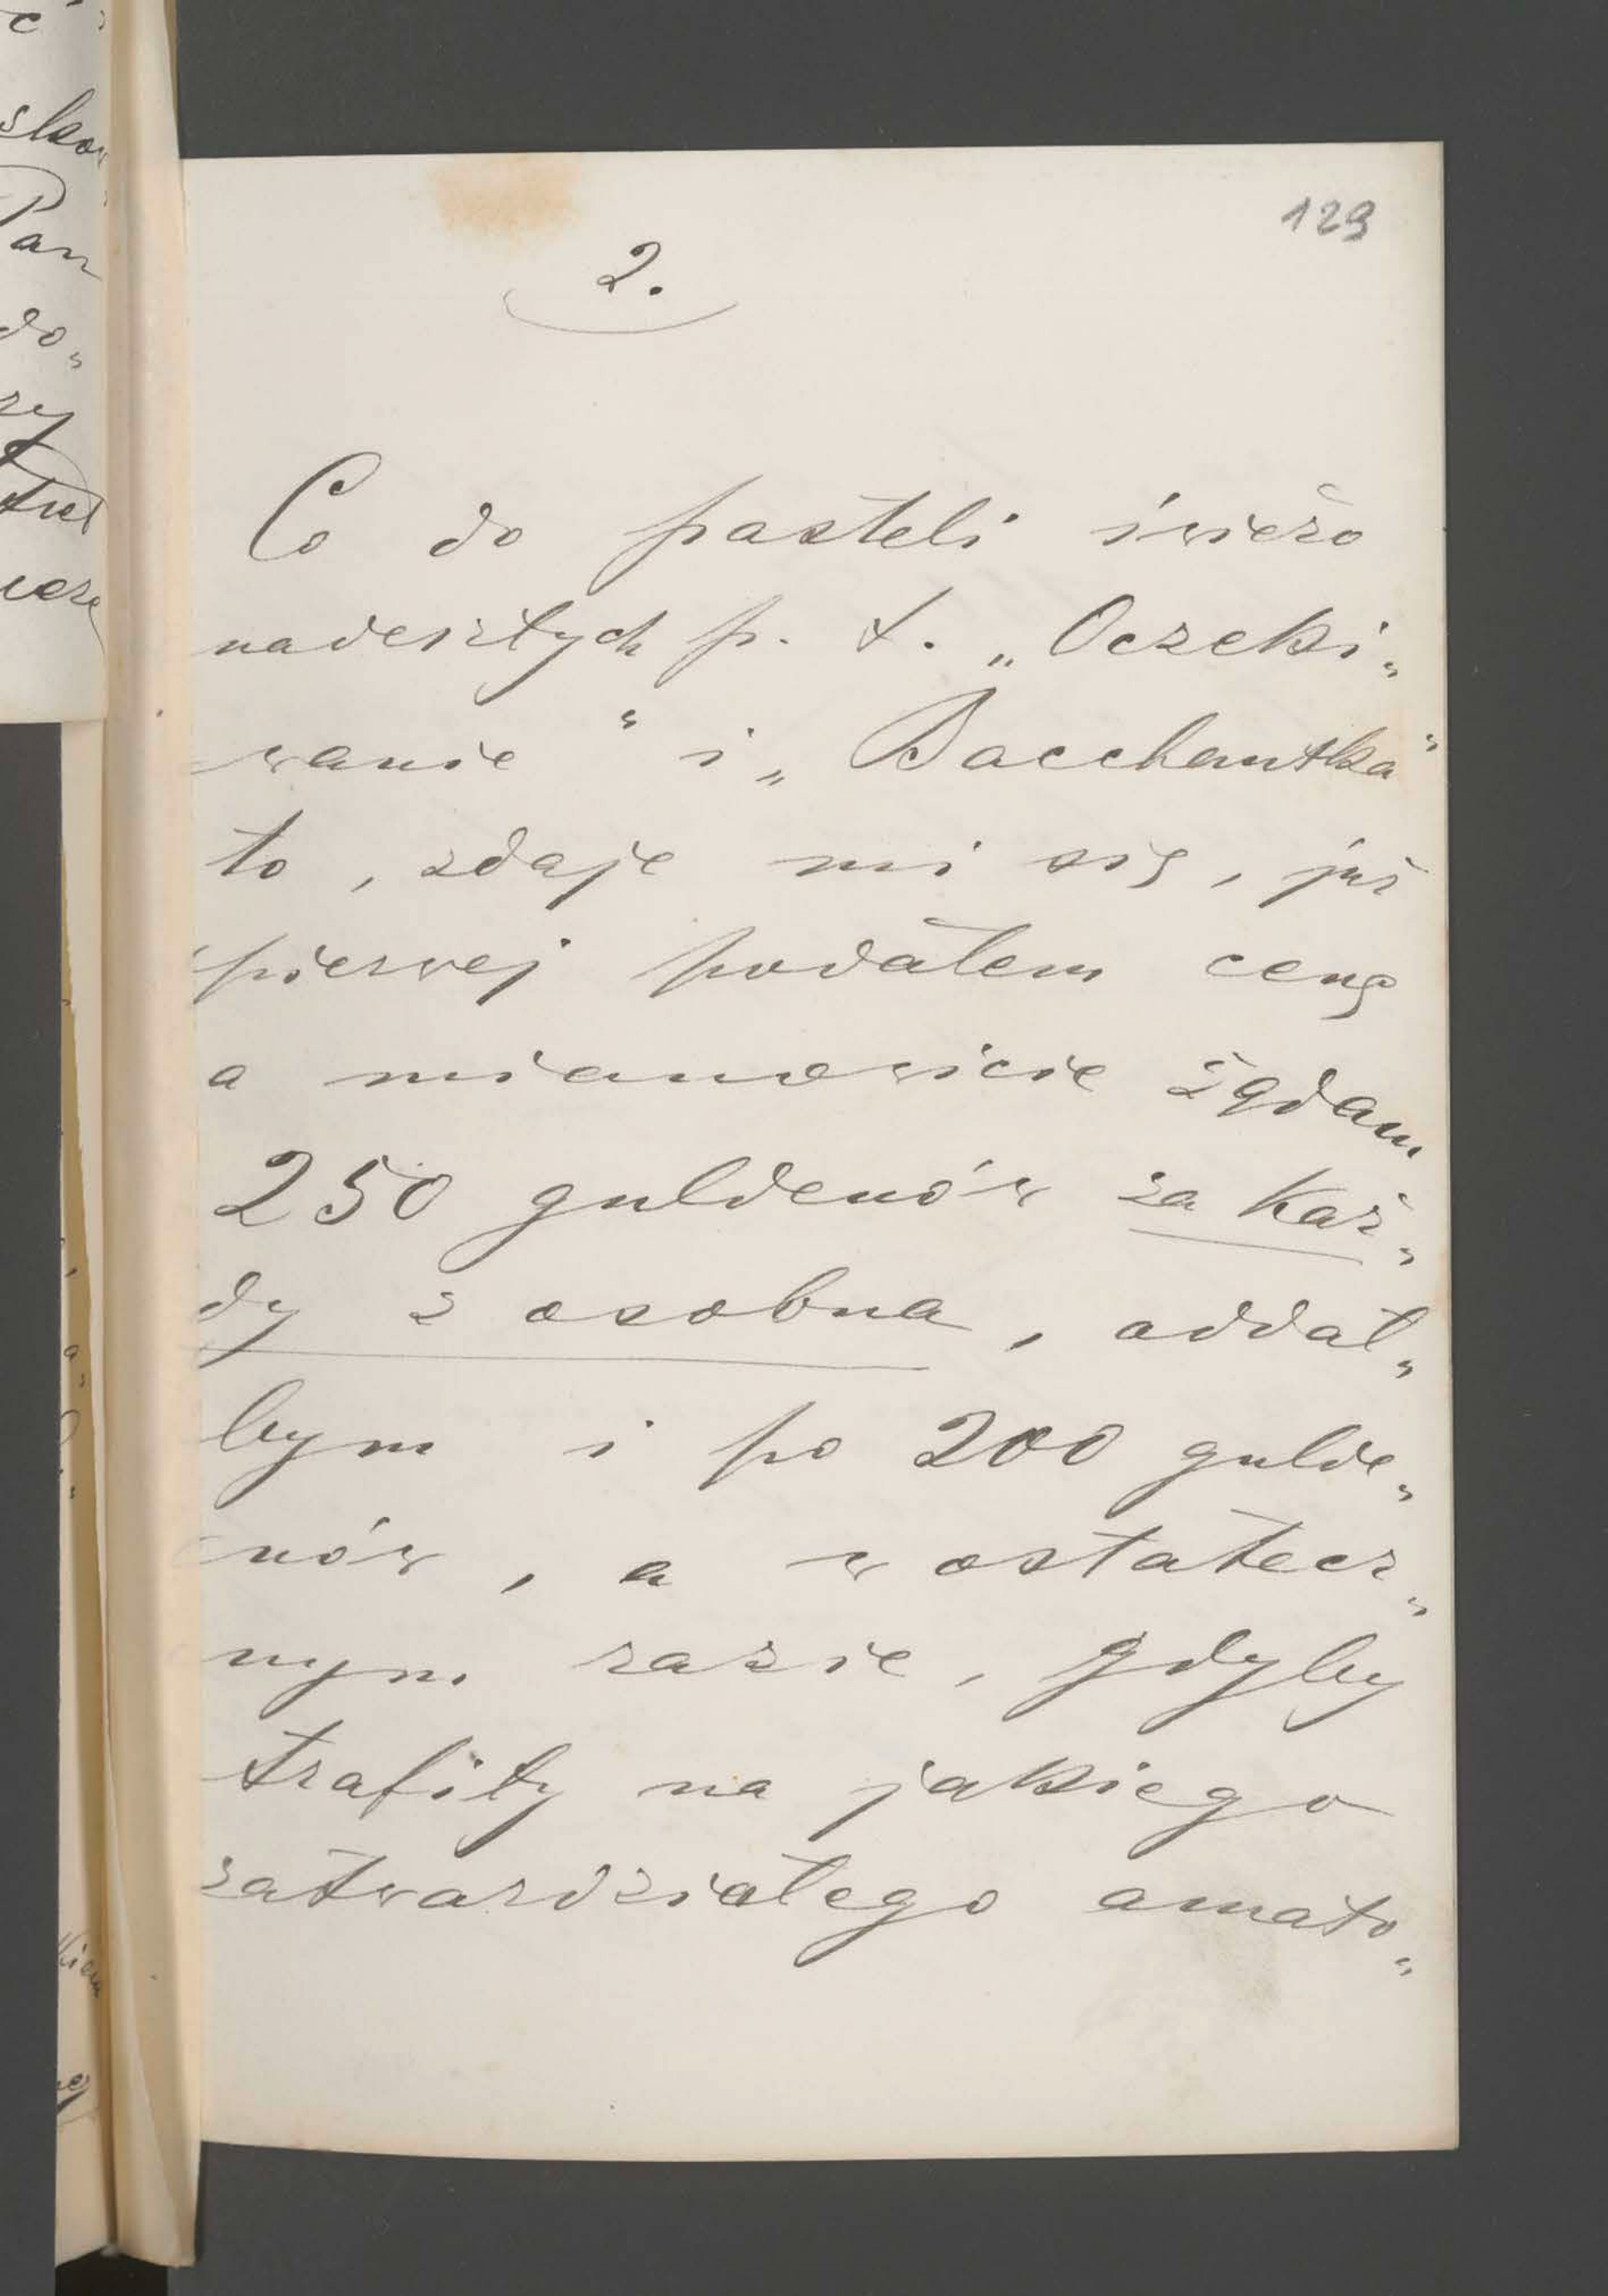 129
2.
Co do pasteli świeżo
nadesztych p. t. „Oczeki„
wanie" i „Bacchantka"
to, zdaje mi się, już
pierwej podałem cenę
a mianowicie żądam
250 guldenów za każ„
dy z osobna, oddał„
bym i po 200 gulde„
nów, a w ostatecz„
nym razie, gdyby
trafiły na jakiego
zatwardziałego amato„